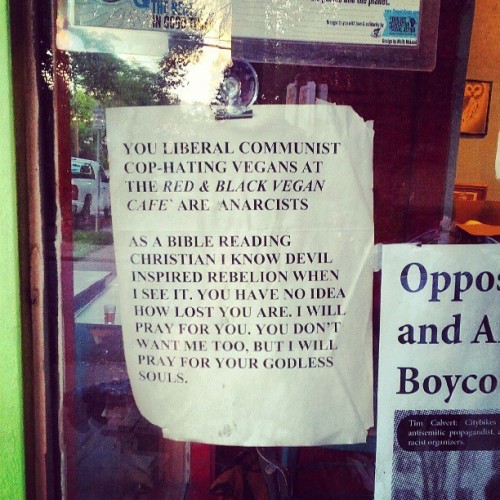 THE RE
IN GOOD
the planet.
Design by Molly
YOU LIBERAL COMMUNIST
COP-HATING VEGANS AT
THE RED & BLACK VEGAN
CAFE` ARE ANARCISTS
AS A BIBLE READING
CHRISTIAN I KNOW DEVIL
INSPIRED REBELION WHEN
I SEE IT. YOU HAVE NO IDEA
HOW LOST YOU ARE. I WILL
PRAY FOR YOU. YOU DON'T
WANT ME TOO, BUT I WILL
PRAY FOR YOUR GODLESS
SOULS.
Oppos
and A
Boyco
Tim Calvert: Citybikes
antisemitic propagandist, a
racist organizers.